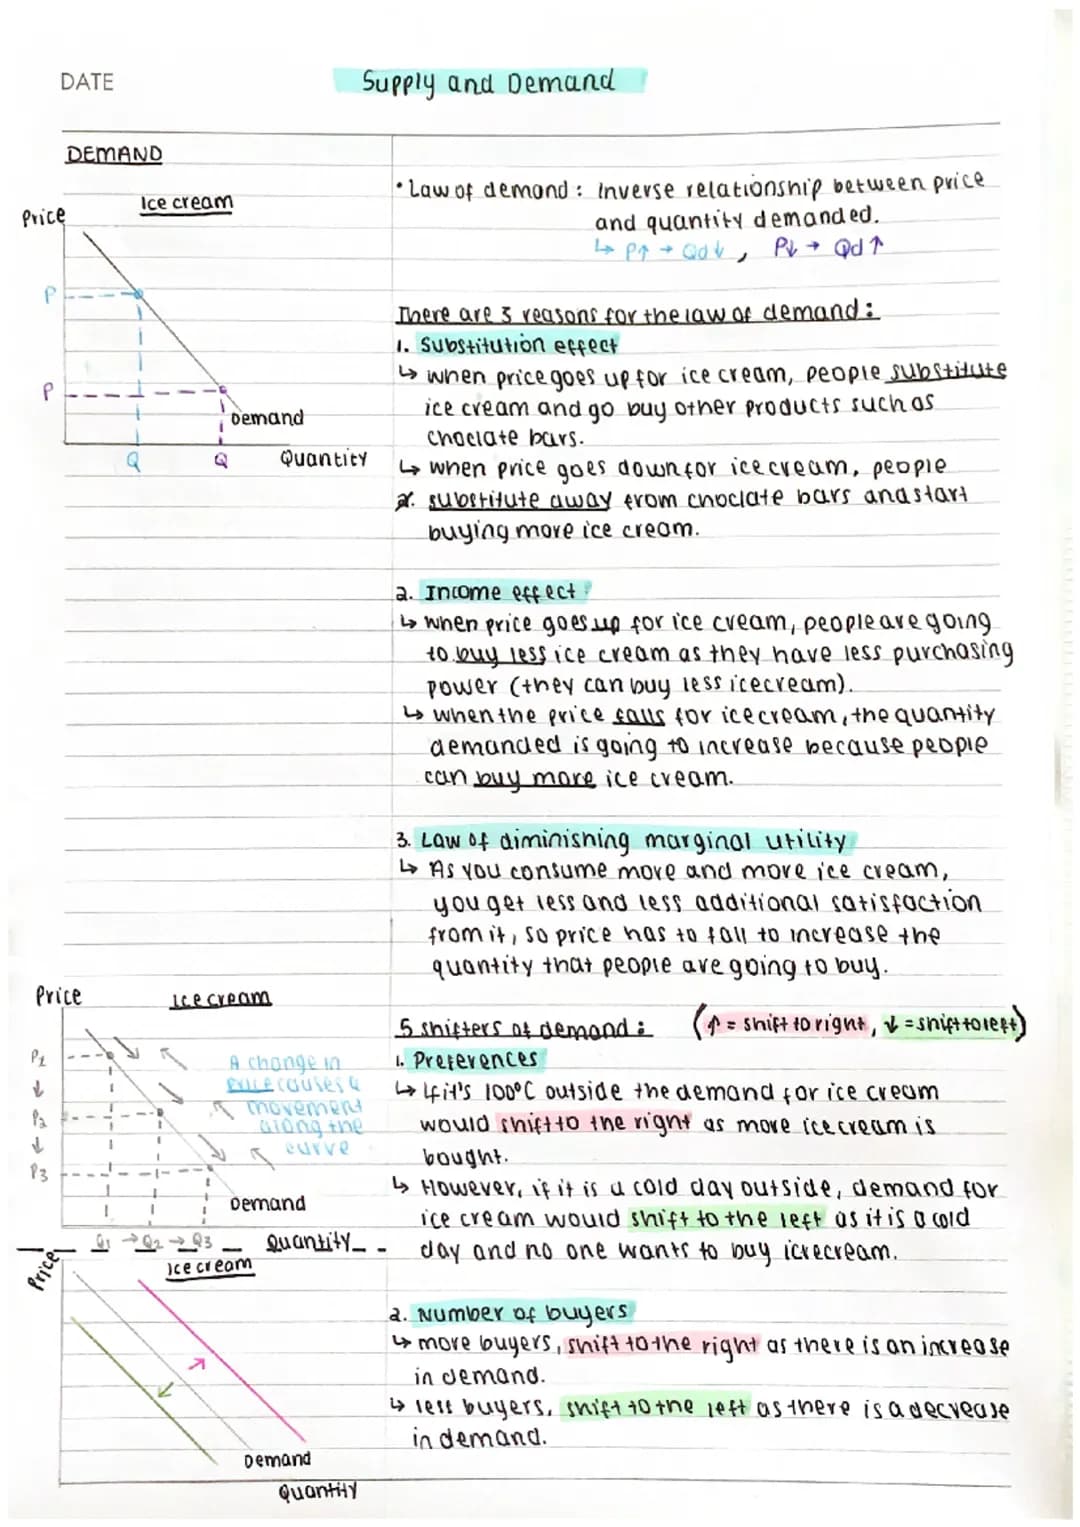 DATE
Supply and Demand
DEMAND
Ice cream
Price
P
P
Demand
Q
Q
Quantity
• Law of demand : Inverse relationship between price
and quantity demanded.
↳ P↑ → Qd↓, P↓ → Qd↑
There are 3 reasons for the law of demand :
1. Substitution effect
↳ when price goes up for ice cream, people substitute
ice cream and go buy other products such as
choclate bars.
↳ when price goes down for ice cream, people
2. substitute away from choclate bars and start
buying more ice cream.
2. Income effect
↳ when price goes up for ice cream, people are going
to buy less ice cream as they have less purchasing
power (they can buy less icecream).
↳ when the price falls for icecream, the quantity
demanded is going to increase because people
can buy more ice cream.
3. Law of diminishing marginal utility
↳ As you consume more and more ice cream,
you get less and less additional satisfaction
from it, so price has to fall to increase the
quantity that people are going to buy.
Price
Ice cream
P1
↓
P2
↓
P3
A change in
price causes a
movement
along the
curve
Demand
Q1 → Q2 → Q3
Quantity
5 shifters of demand : (↑ = shift to right, ↓ = shift to left)
1. Preferences
↳ If it's 100°C outside the demand for ice cream
would shift to the right as more icecream is
bought.
↳ However, if it is a cold day outside, demand for
ice cream would shift to the left as it is a cold
day and no one wants to buy icrecream.
Price
Ice cream
Demand
Quantity
2. Number of buyers
↳ more buyers, shift to the right as there is an increase
in demand.
↳ less buyers, shift to the left as there is a decrease
in demand.